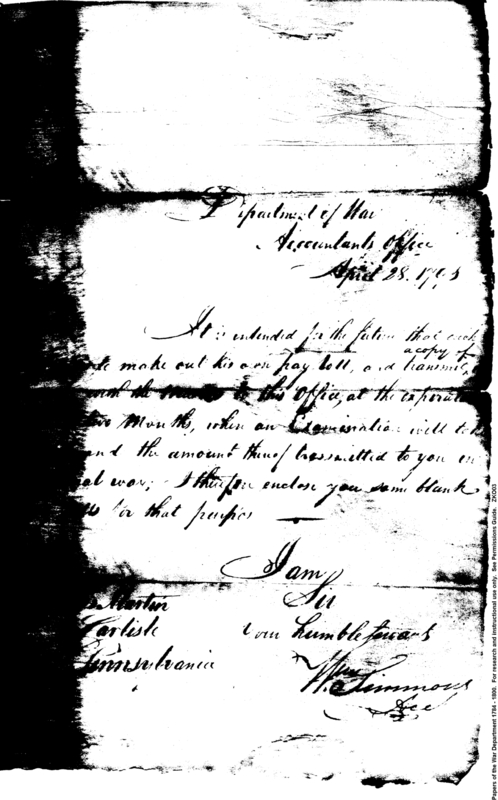 Department of War
Accountants Office
April 28. 179
It is intended for the future that each
make out his own pay roll, and transmit, a copy of
with the to this Office, at the expiration
Months, when an Examination will take
and the amount thereof transmitted to you in
way; I therefore enclose you some blank
for that purpose
I am
Sir
Your humble Servant
Wm Simmons
Acct
Martin
Carlisle
Pennsylvania
Papers of the War Department 1784 - 1800. For research and instructional use only. See Permissions Guide. ZK003